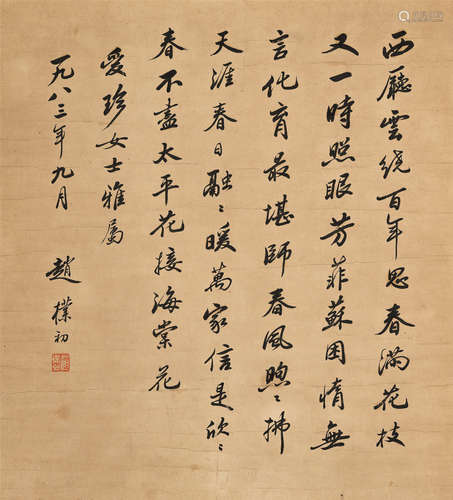 西廳雲繞百年思春滿花枝
又一時照眼芳菲蘇困情無
言化育最堪師春風煦〻拂
天涯春日融〻暖萬家信是欣〻
春不盡太平花接海棠花
愛珍女士雅屬
一九八三年九月
趙樸初